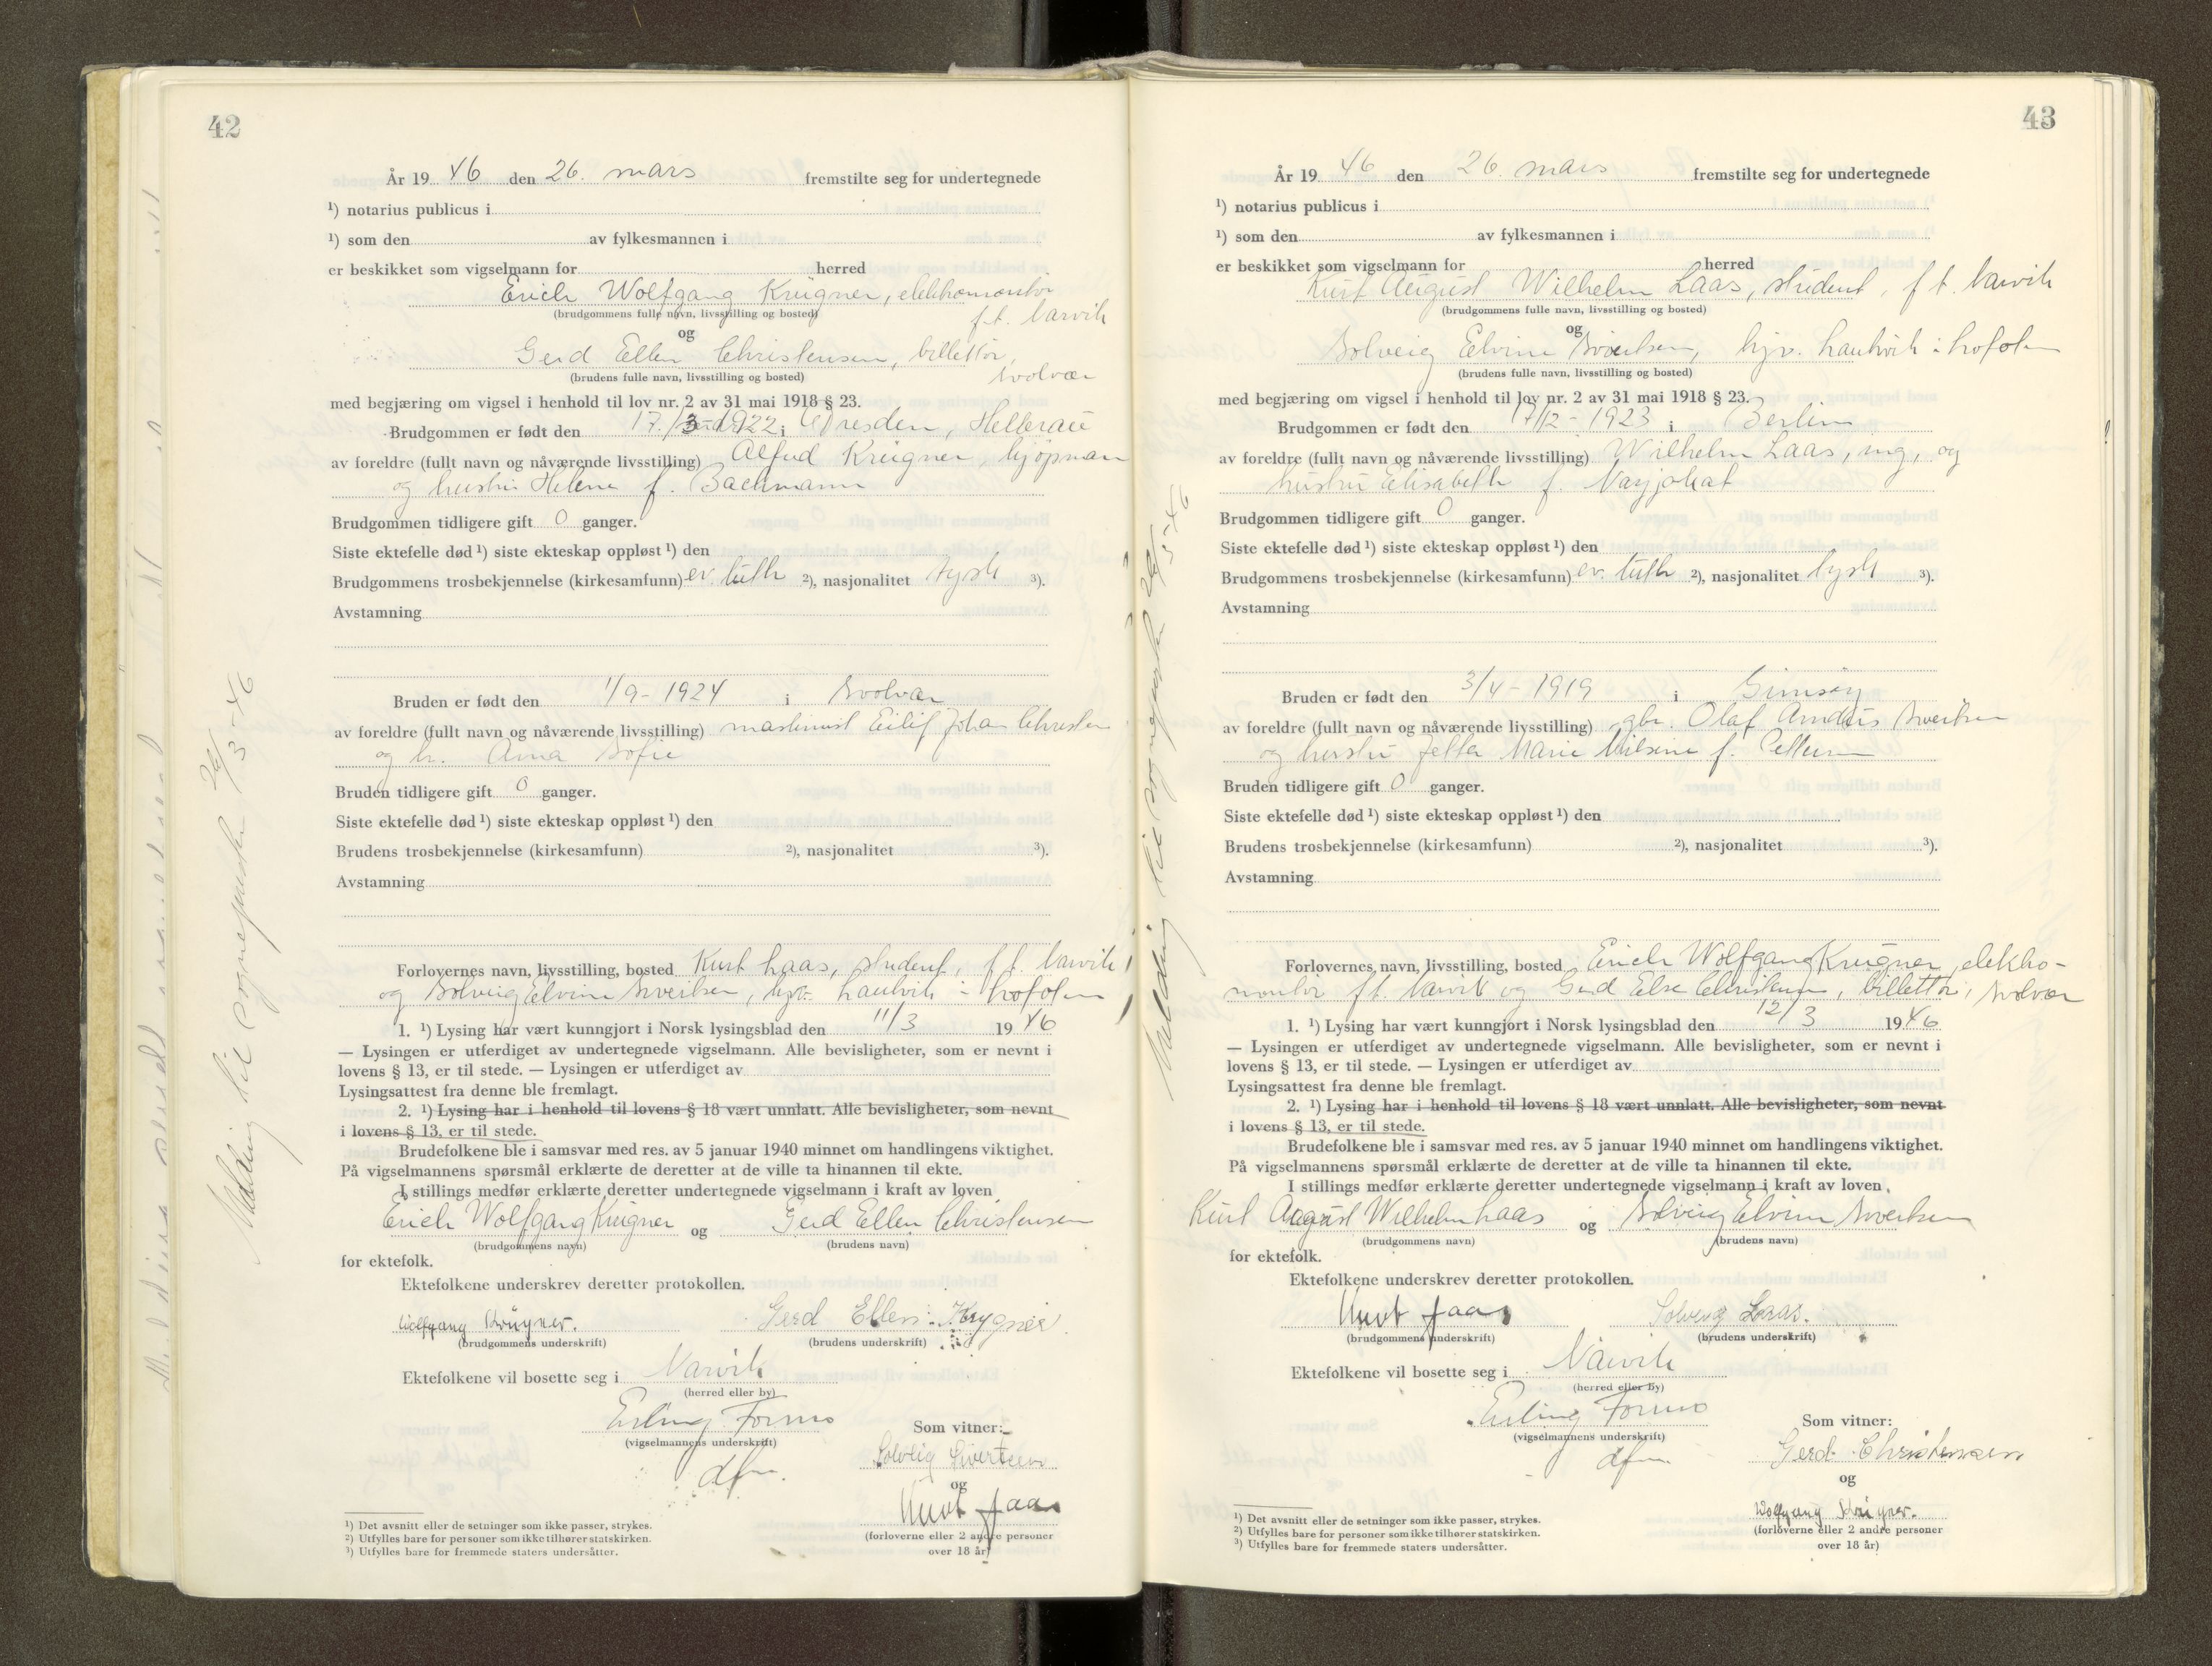 42
År 19 46 den 26. mars fremstilte seg for undertegnede
¹) notarius publicus i
¹) som den av fylkesmannen i
er beskikket som vigselmann for herred
Erich Wolfgang Krügner, elektromontør
(brudgommens fulle navn, livsstilling og bosted)
f.t. Narvik
og
Gerd Ellen Christensen, billettør,
(brudens fulle navn, livsstilling og bosted)
Svolvær
med begjæring om vigsel i henhold til lov nr. 2 av 31 mai 1918 § 23.
Brudgommen er født den 17./3 1922 i Dresden, Hellerau
av foreldre (fullt navn og nåværende livsstilling) Alfred Krügner, kjøpman
og hustru Helene f. Bachmann
Brudgommen tidligere gift 0 ganger.
Siste ektefelle død ¹) siste ekteskap oppløst ¹) den
Brudgommens trosbekjennelse (kirkesamfunn) ev. luth ²), nasjonalitet tysk ³).
Avstamning
Bruden er født den 1/9 - 1924 i Svolvær
av foreldre (fullt navn og nåværende livsstilling) maskinist Eilif Johan Christen
og h. Anna Sofie
Bruden tidligere gift 0 ganger.
Siste ektefelle død ¹) siste ekteskap oppløst ¹) den
Brudens trosbekjennelse (kirkesamfunn) ²), nasjonalitet ³).
Avstamning
Forlovernes navn, livsstilling, bosted Kurt Laas, student, f.t. Narvik
og Solveig Elvine Sivertsen, hjv. Haukvik i Lofoten
1. ¹) Lysing har vært kunngjort i Norsk lysingsblad den 11/3 19 46
— Lysingen er utferdiget av undertegnede vigselmann. Alle bevisligheter, som er nevnt i
lovens § 13, er til stede. — Lysingen er utferdiget av
Lysingsattest fra denne ble fremlagt.
2. ¹) Lysing har i henhold til lovens § 18 vært unnlatt. Alle bevisligheter, som nevnt
i lovens § 13, er til stede.
Brudefolkene ble i samsvar med res. av 5 januar 1940 minnet om handlingens viktighet.
På vigselmannens spørsmål erklærte de deretter at de ville ta hinannen til ekte.
I stillings medfør erklærte deretter undertegnede vigselmann i kraft av loven
Erich Wolfgang Krügner og Gerd Ellen Christensen
(brudgommens navn) (brudens navn)
for ektefolk.
Ektefolkene underskrev deretter protokollen.
Wolfgang Krügner. Gerd Ellen Krygner
(brudgommens underskrift) (brudens underskrift)
Ektefolkene vil bosette seg i Narvik
(herred eller by)
Erling Formo
(vigselmannens underskrift)
dfm.
Som vitner:
Solveig Sivertsen
og
Kurt Laas
(forloverne eller 2 andre personer
over 18 år)
¹) Det avsnitt eller de setninger som ikke passer, strykes.
²) Utfylles bare for personer som ikke tilhører statskirken.
³) Utfylles bare for fremmede staters undersåtter.
Melding til sogneprester 26/3-46
43
År 19 46 den 26. mars fremstilte seg for undertegnede
¹) notarius publicus i
¹) som den av fylkesmannen i
er beskikket som vigselmann for herred
Kurt August Wilhelm Laas, student, f.t. Narvik
(brudgommens fulle navn, livsstilling og bosted)
og
Solveig Elvine Sivertsen, hjv. Haukvik i Lofoten
(brudens fulle navn, livsstilling og bosted)
med begjæring om vigsel i henhold til lov nr. 2 av 31 mai 1918 § 23.
Brudgommen er født den 17/12 - 1923 i Berlin
av foreldre (fullt navn og nåværende livsstilling) Wilhelm Laas, ing, og
hustru Elisabeth f.
Brudgommen tidligere gift 0 ganger.
Siste ektefelle død ¹) siste ekteskap oppløst ¹) den
Brudgommens trosbekjennelse (kirkesamfunn) ev. luth ²), nasjonalitet tysk ³).
Avstamning
Bruden er født den 3/4 - 1919 i Gimsøy
av foreldre (fullt navn og nåværende livsstilling) gbr. Olaf Andreas Sivertsen
og hustru Marie f.
Bruden tidligere gift 0 ganger.
Siste ektefelle død ¹) siste ekteskap oppløst ¹) den
Brudens trosbekjennelse (kirkesamfunn) ²), nasjonalitet ³).
Avstamning
Forlovernes navn, livsstilling, bosted Erich Wolfgang Krügner, elektro-
montør f.t. Narvik og Gerd Else Christensen, billettør, Svolvær
1. ¹) Lysing har vært kunngjort i Norsk lysingsblad den 12/3 19 46
— Lysingen er utferdiget av undertegnede vigselmann. Alle bevisligheter, som er nevnt i
lovens § 13, er til stede. — Lysingen er utferdiget av
Lysingsattest fra denne ble fremlagt.
2. ¹) Lysing har i henhold til lovens § 18 vært unnlatt. Alle bevisligheter, som nevnt
i lovens § 13, er til stede.
Brudefolkene ble i samsvar med res. av 5 januar 1940 minnet om handlingens viktighet.
På vigselmannens spørsmål erklærte de deretter at de ville ta hinannen til ekte.
I stillings medfør erklærte deretter undertegnede vigselmann i kraft av loven
Kurt August Wilhelm Laas og Solveig Elvine Sivertsen
(brudgommens navn) (brudens navn)
for ektefolk.
Ektefolkene underskrev deretter protokollen.
Kurt Laas Solveig Laas.
(brudgommens underskrift) (brudens underskrift)
Ektefolkene vil bosette seg i Narvik
(herred eller by)
Erling Formo
(vigselmannens underskrift)
dfm.
Som vitner:
Gerd Christensen
og
Wolfgang Krügner.
(forloverne eller 2 andre personer
over 18 år)
¹) Det avsnitt eller de setninger som ikke passer, strykes.
²) Utfylles bare for personer som ikke tilhører statskirken.
³) Utfylles bare for fremmede staters undersåtter.
Melding til sogneprester 26/3-46